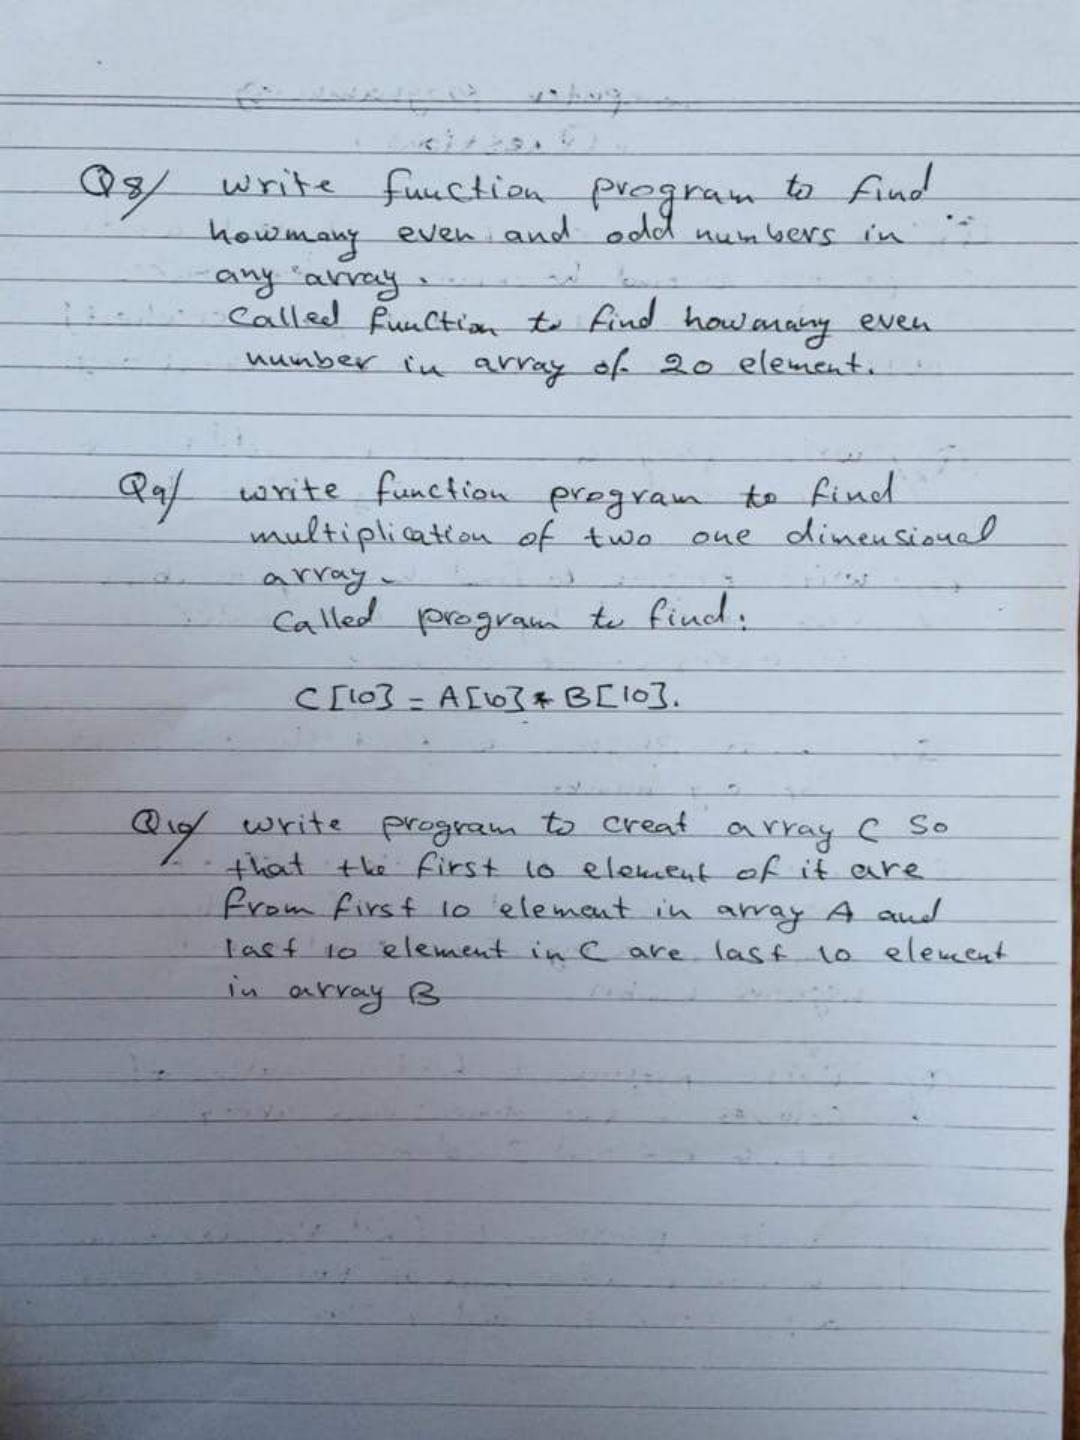 Q8/ write function program to find
howmany even and odd numbers in
any array.
Called function to find howmany even
number in array of 20 element.
Q9/ write function program to find
multiplication of two one dimensional
array.
Called program to find:
C[10] = A[10] * B[10].
Q10/ write program to creat array C so
that the first 10 element of it are
from first 10 element in array A and
last 10 element in C are last 10 element
in array B